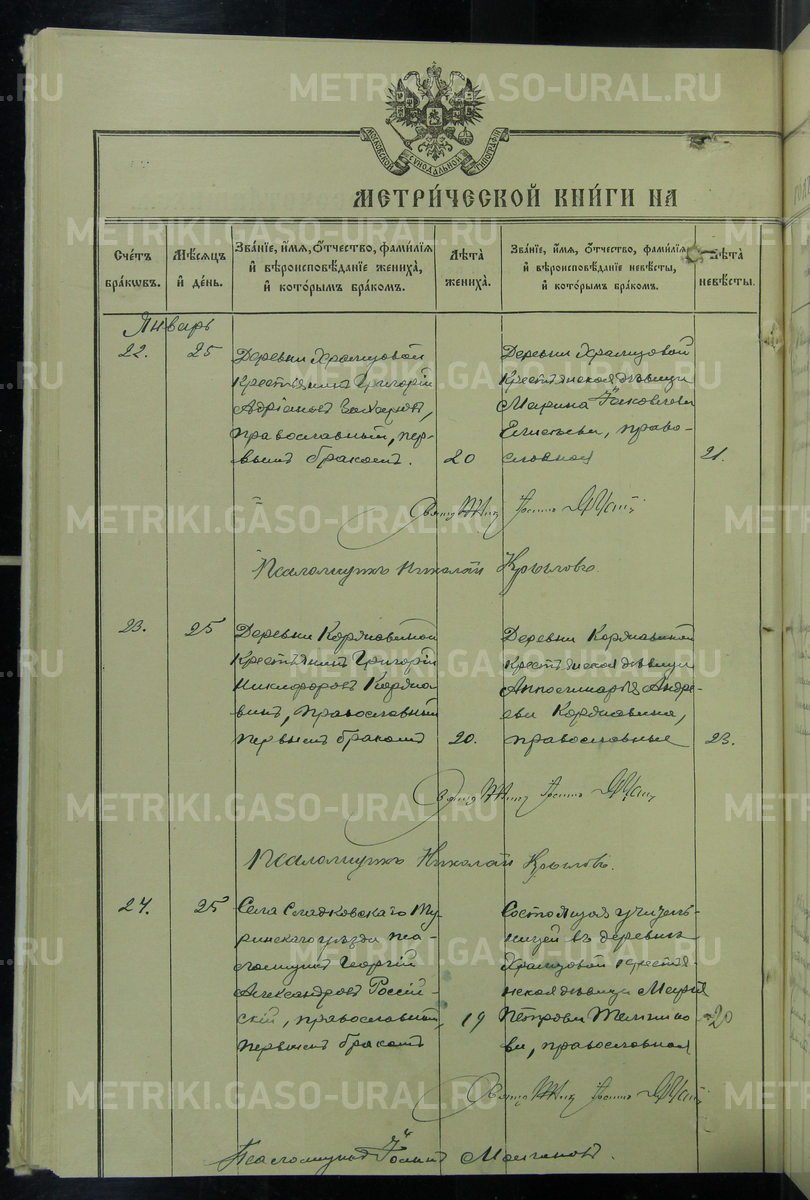 МОСКОВСКОЙ СѴНОДАЛЬНОЙ ТИПОГРАФІИ
МЕТРИ́ЧЕСКОЙ КНИ́ГИ НА
Сче́тъ бра́кѡвъ.
Мѣ́сяцъ и҆ де́нь.
Зва́нїе, и҆́мѧ, ѻ҆́тчество, фами́лїѧ и҆ вѣроисповѣ́данїе жениха̀, и҆ кото́рымъ бра́комъ.
Лѣ́та жениха̀.
Зва́нїе, и҆́мѧ, ѻ҆́тчество, фами́лїѧ и҆ вѣроисповѣ́данїе невѣ́сты, и҆ кото́рымъ бра́комъ.
Лѣ́та невѣ́сты.
Январь
22.
25
Деревни Храмцовой
крестьянинъ Григорій
Адріановъ Захаровъ,
православный, пер-
вымъ бракомъ.
20
Деревни Храмцовой
крестьянская дѣвица
Марина Іаковлева
православная
21.
Священникъ Іоаннъ
Псаломщикъ Николай Крыловъ.
23.
25
Деревни Корявиной
крестьянинъ Григорій
Никифоровъ Коряка-
винъ, православный
первымъ бракомъ
20.
Деревни Корявиной
крестьянская дѣвица
Аполлинарія Андре-
ева Корявина,
православные
23.
Священникъ Іоаннъ
Псаломщикъ Николай Крыловъ.
24.
25
Села Сладковскаго Ту-
ринскаго уѣзда пса-
ломщикъ Георгій
Александровъ Россій-
скій, православный,
первымъ бракомъ
19
Состоящая учитель-
ницей въ деревнѣ
Храмцовой крестья-
нская дѣвица Марія
Петрова
православная
20
Священникъ Іоаннъ
Псаломщикъ Іоаннъ
METRIKI.GASO-URAL.RU